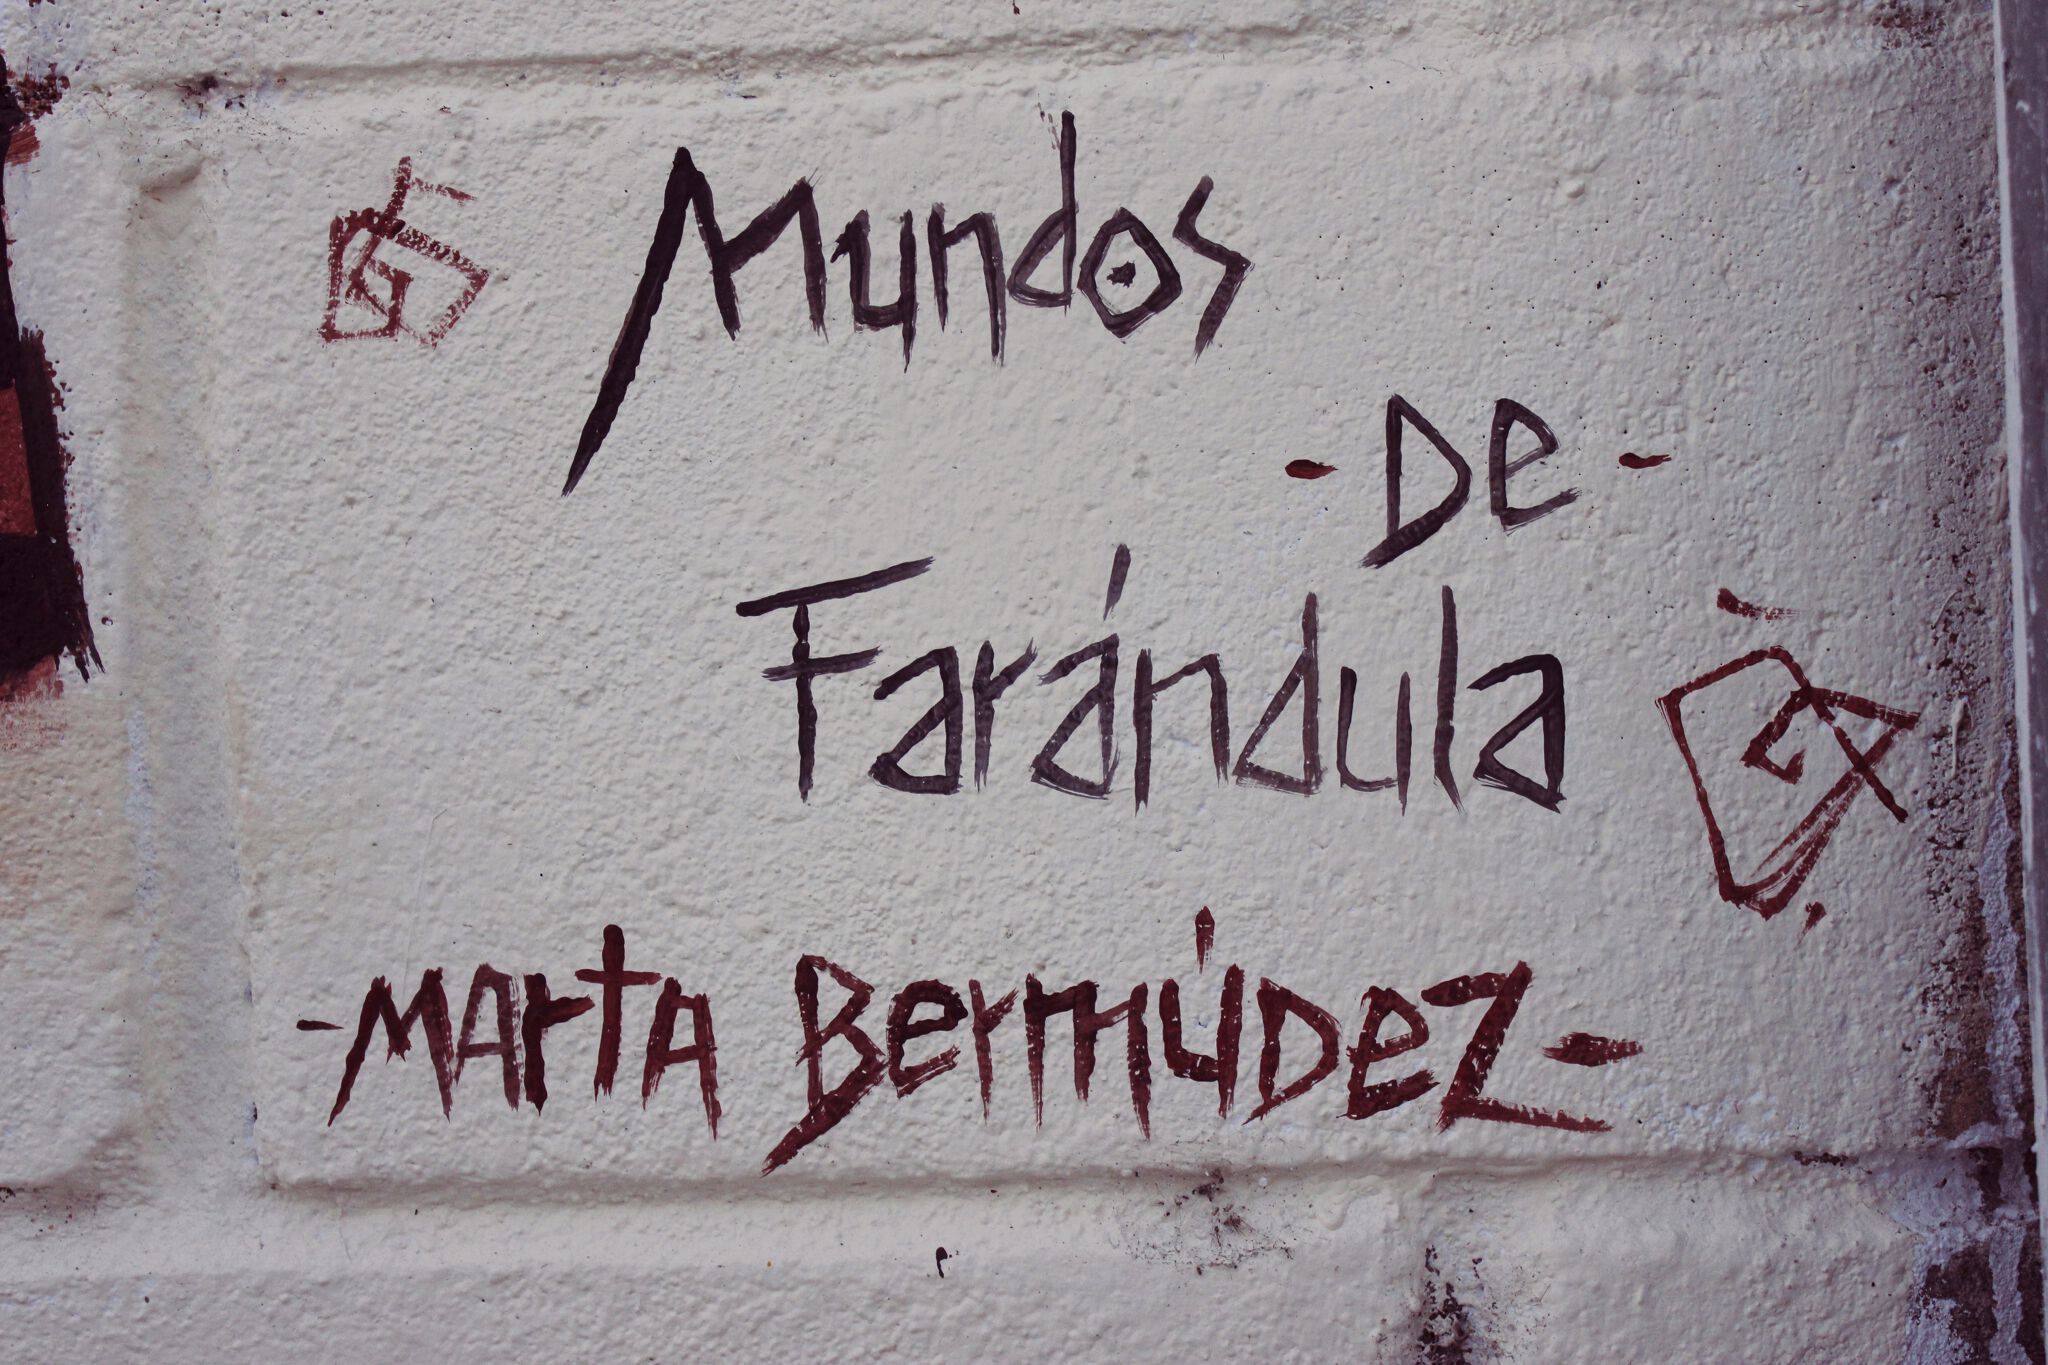 Mundos
- De -
Farándula
- Marta Bermúdez -